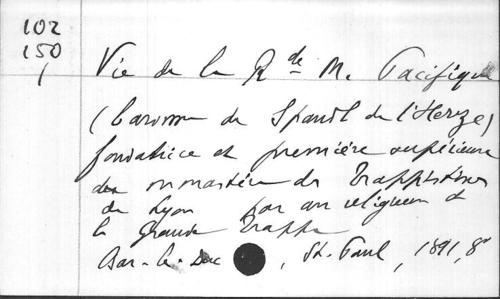 102
150
1
Vie de la Rde M. Pacifique
(baronne de Spandl de l'Herze)
fondatrice et première supérieure
du monastère des Trappistines
de Lyon par un religieux de
la Grande Trappe
Bar-le-Duc, St. Paul, 1891, 8°